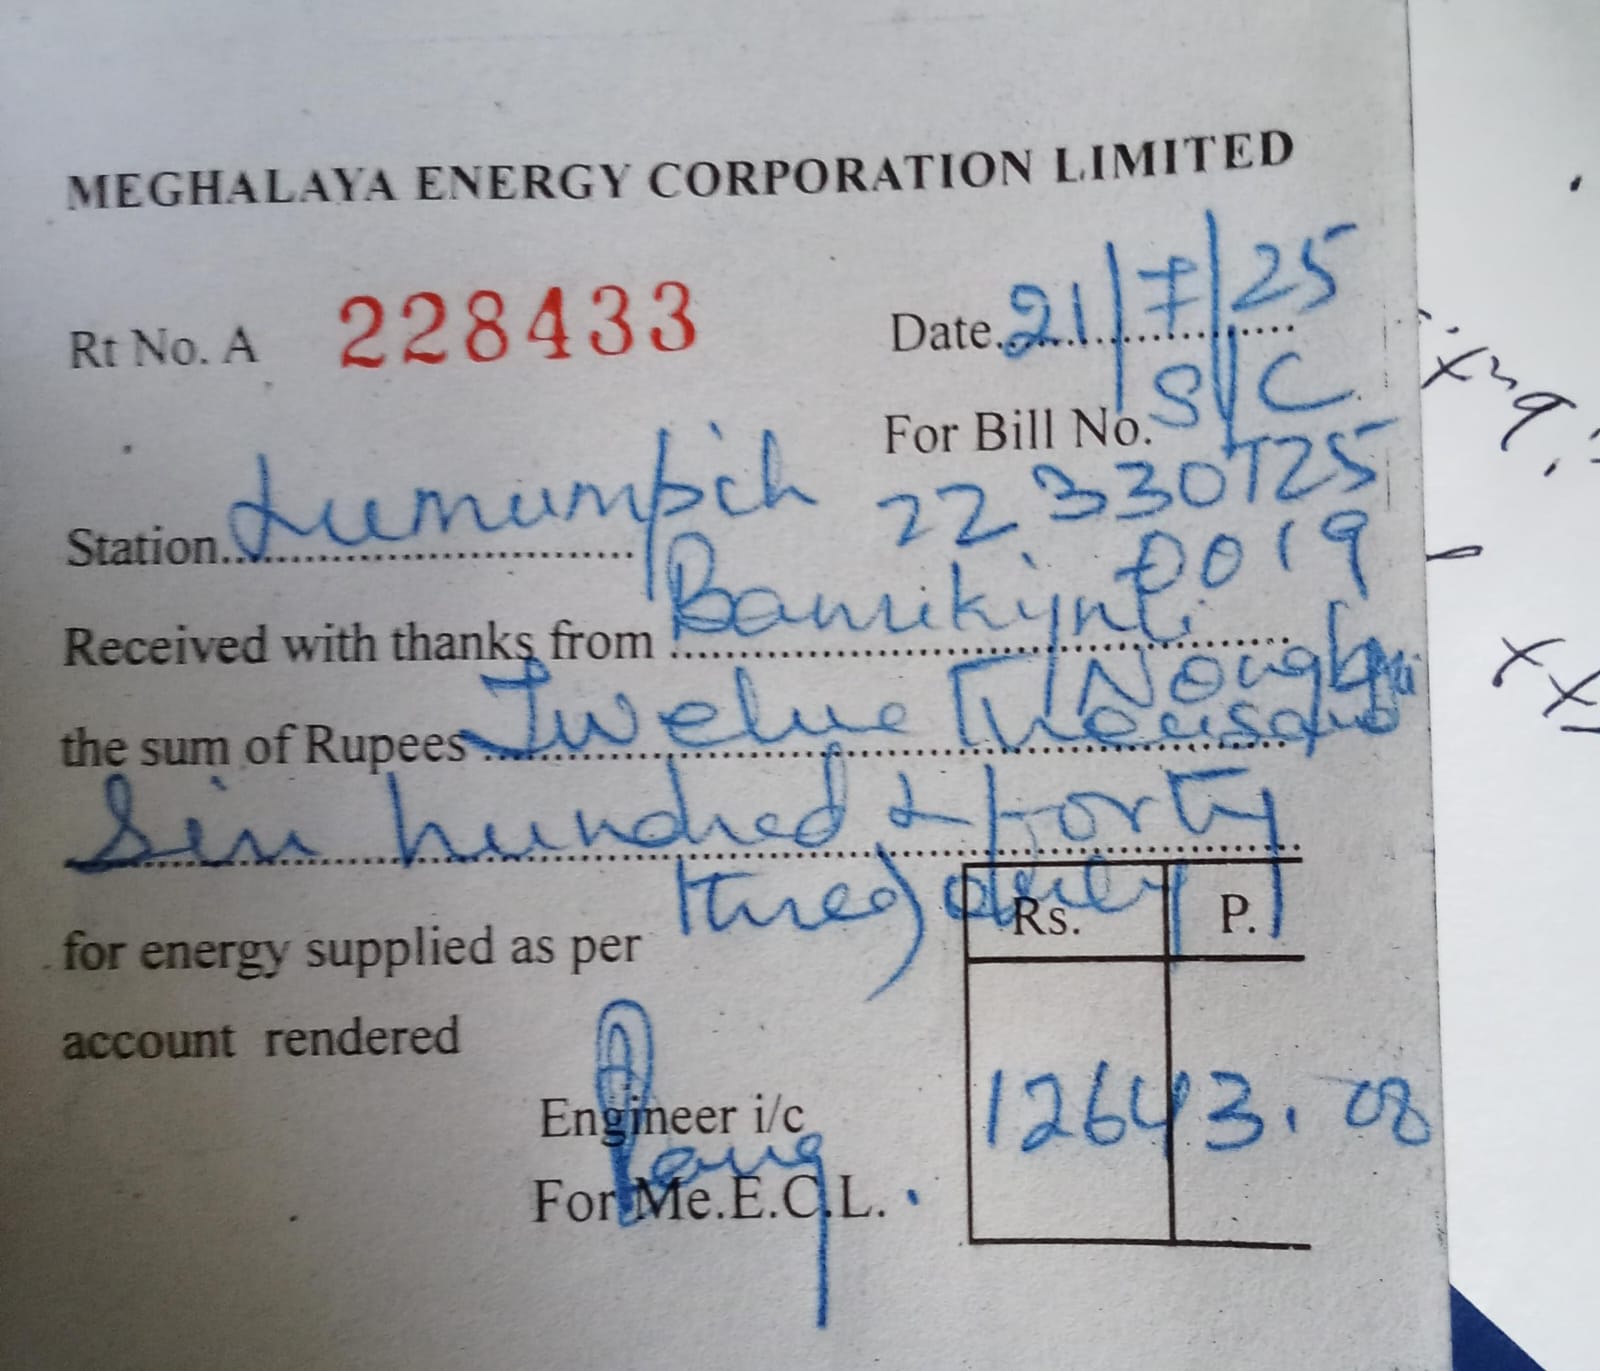 MEGHALAYA ENERGY CORPORATION LIMITED
Rt No. A 228433 Date. 21/7/25
For Bill No. S/C
22330725
0019
Station
Received with thanks from
the sum of Rupees Twelve Thousand
Six hundred & forty
three) only
for energy supplied as per
account rendered
Rs. P.
12643.08
Engineer i/c
For Me.E.C.L.